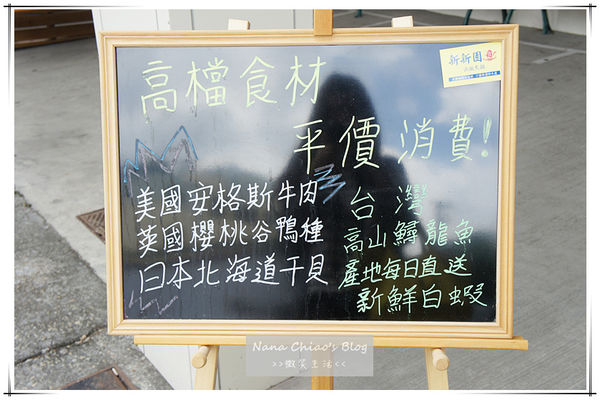 高檔食材
平價消費!
美國安格斯牛肉
英國櫻桃谷鴨種
日本北海道干貝
台灣
高山鱘龍魚
產地每日直送
新鮮白蝦
新新園
Nana Chiao's Blog
>>微笑生活<<